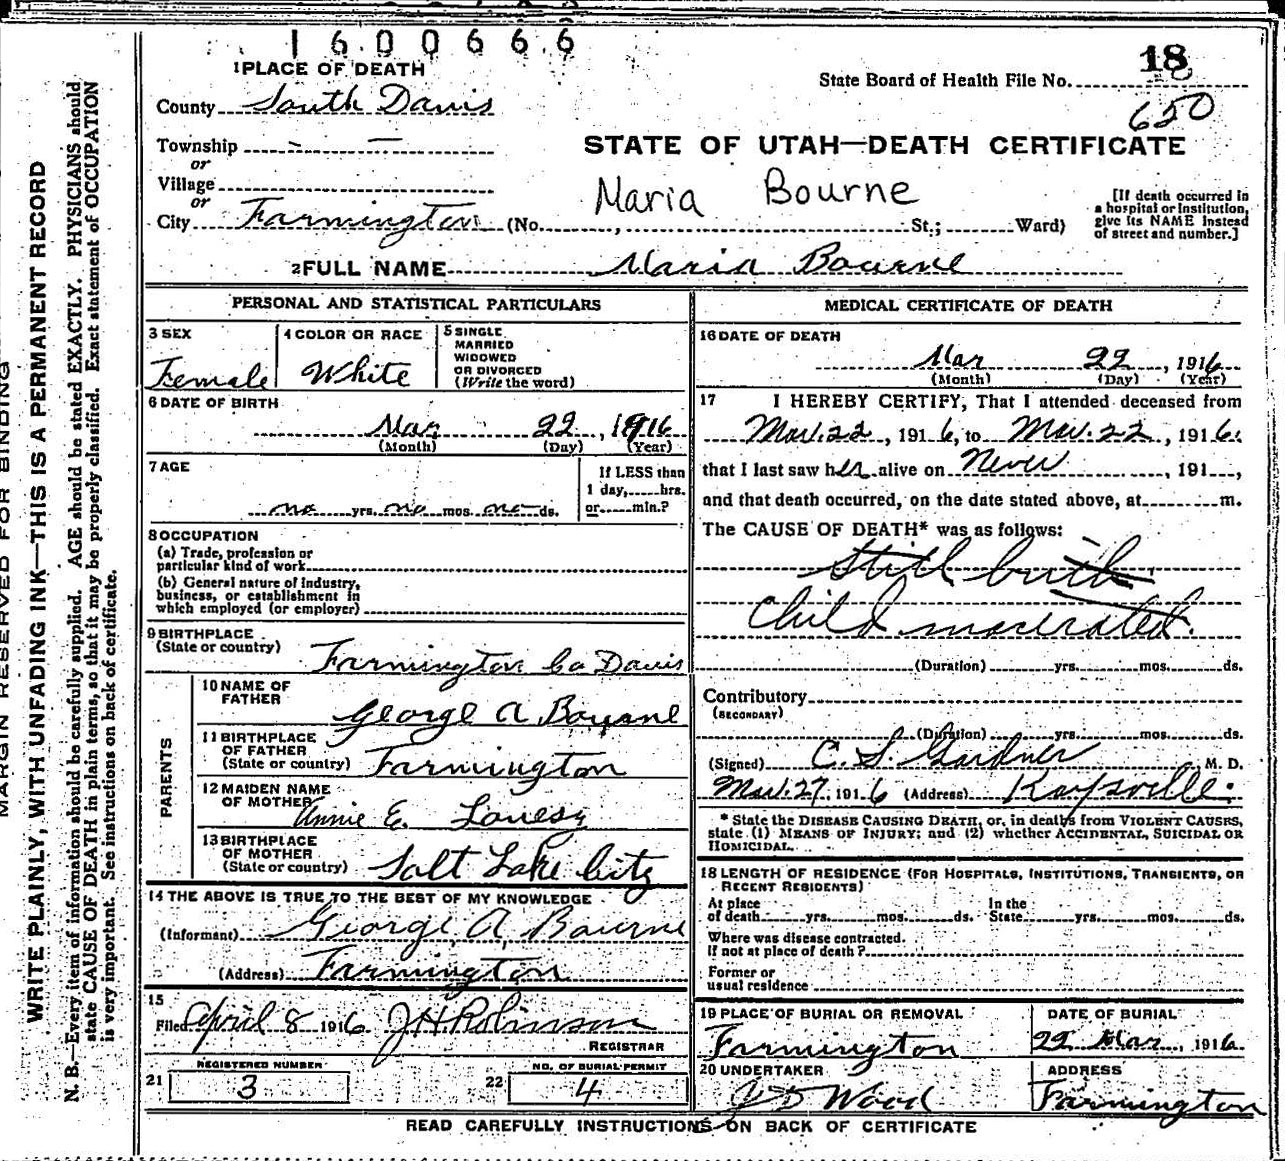 1600666
18
1 PLACE OF DEATH
State Board of Health File No.
650
County South Davis
STATE OF UTAH—DEATH CERTIFICATE
Township — —
or
Village
or
Maria Bourne
City Farmington (No. , St.; Ward)
[If death occurred in a hospital or institution, give its NAME instead of street and number.]
2 FULL NAME Maria Bourne
PERSONAL AND STATISTICAL PARTICULARS
3 SEX
Female
4 COLOR OR RACE
White
5 SINGLE
MARRIED
WIDOWED
OR DIVORCED
(Write the word)
6 DATE OF BIRTH
Mar 22, 1916
(Month) (Day) (Year)
7 AGE
no yrs. no mos. no ds.
If LESS than
1 day, hrs.
or min.?
8 OCCUPATION
(a) Trade, profession or
particular kind of work
(b) General nature of industry,
business, or establishment in
which employed (or employer)
9 BIRTHPLACE
(State or country) Farmington Co Davis
PARENTS
10 NAME OF
FATHER George A Bourne
11 BIRTHPLACE
OF FATHER
(State or country) Farmington
12 MAIDEN NAME
OF MOTHER Annie E.
13 BIRTHPLACE
OF MOTHER
(State or country) Salt Lake City
14 THE ABOVE IS TRUE TO THE BEST OF MY KNOWLEDGE
(Informant) George A Bourne
(Address) Farmington
15
Filed April 8 1916 J H Robinson
REGISTRAR
REGISTERED NUMBER
21 3
NO. OF BURIAL PERMIT
22 4
MEDICAL CERTIFICATE OF DEATH
16 DATE OF DEATH
Mar 22, 1916
(Month) (Day) (Year)
17 I HEREBY CERTIFY, That I attended deceased from
Mar. 22, 1916, to Mar. 22, 1916.
that I last saw her alive on Never, 191 ,
and that death occurred, on the date stated above, at m.
The CAUSE OF DEATH* was as follows:
Still birth
Child macerated.
(Duration) yrs. mos. ds.
Contributory
(SECONDARY)
(Duration) yrs. mos. ds.
(Signed) C. S. Gardner M. D.
Mar. 27, 1916 (Address) Kaysville.
* State the DISEASE CAUSING DEATH, or, in deaths from VIOLENT CAUSES,
state (1) MEANS OF INJURY; and (2) whether ACCIDENTAL, SUICIDAL OR
HOMICIDAL.
18 LENGTH OF RESIDENCE (FOR HOSPITALS, INSTITUTIONS, TRANSIENTS, OR
RECENT RESIDENTS)
At place In the
of death yrs. mos. ds. State yrs. mos. ds.
Where was disease contracted.
if not at place of death?
Former or
usual residence
19 PLACE OF BURIAL OR REMOVAL
Farmington
DATE OF BURIAL
22 Mar, 1916
20 UNDERTAKER
J D Wood
ADDRESS
Farmington
READ CAREFULLY INSTRUCTIONS ON BACK OF CERTIFICATE
MARGIN RESERVED FOR BINDING
WRITE PLAINLY, WITH UNFADING INK—THIS IS A PERMANENT RECORD
N. B.—Every item of information should be carefully supplied. AGE should be stated EXACTLY. PHYSICIANS should
state CAUSE OF DEATH in plain terms, so that it may be properly classified. Exact statement of OCCUPATION
is very important. See instructions on back of certificate.